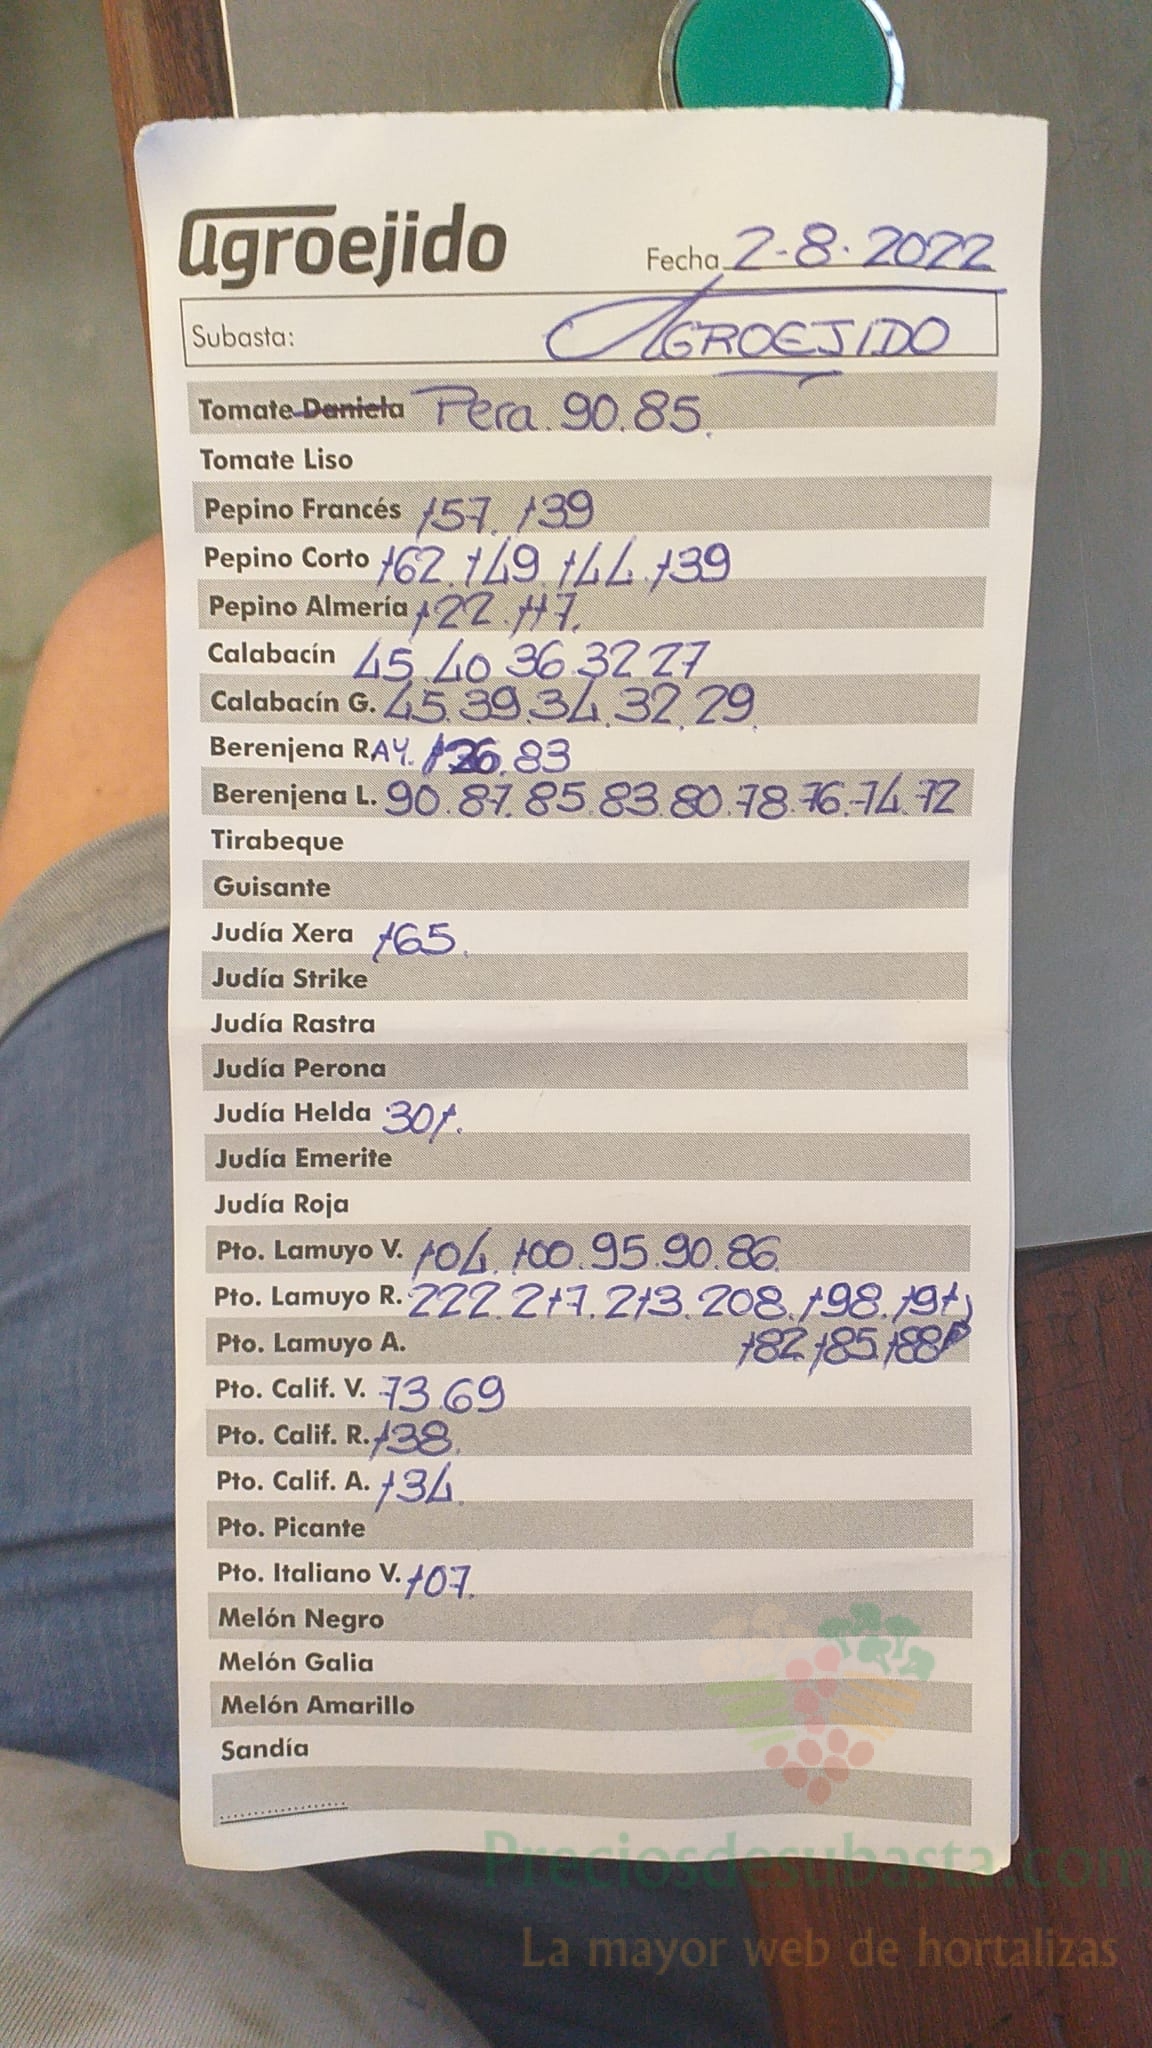 agroejido
Fecha 2-8-2022
Subasta: AGROEJIDO
Tomate Daniela Pera. 90.85.
Tomate Liso
Pepino Francés 157. 139
Pepino Corto 162.149.144.139
Pepino Almería 122.117.
Calabacín 45.40 36.32 27
Calabacín G. 45.39.34.32.29
Berenjena RAY. 126.83
Berenjena L. 90.87.85.83.80.78.76.74.72
Tirabeque
Guisante
Judía Xera 165.
Judía Strike
Judía Rastra
Judía Perona
Judía Helda 301.
Judía Emerite
Judía Roja
Pto. Lamuyo V. 104.100.95.90.86
Pto. Lamuyo R. 222.217.213.208.198.191
Pto. Lamuyo A. 182.185.188
Pto. Calif. V. 73.69
Pto. Calif. R. 138.
Pto. Calif. A. 134.
Pto. Picante
Pto. Italiano V. 107.
Melón Negro
Melón Galia
Melón Amarillo
Sandía
Preciosdesubasta.com
La mayor web de hortalizas